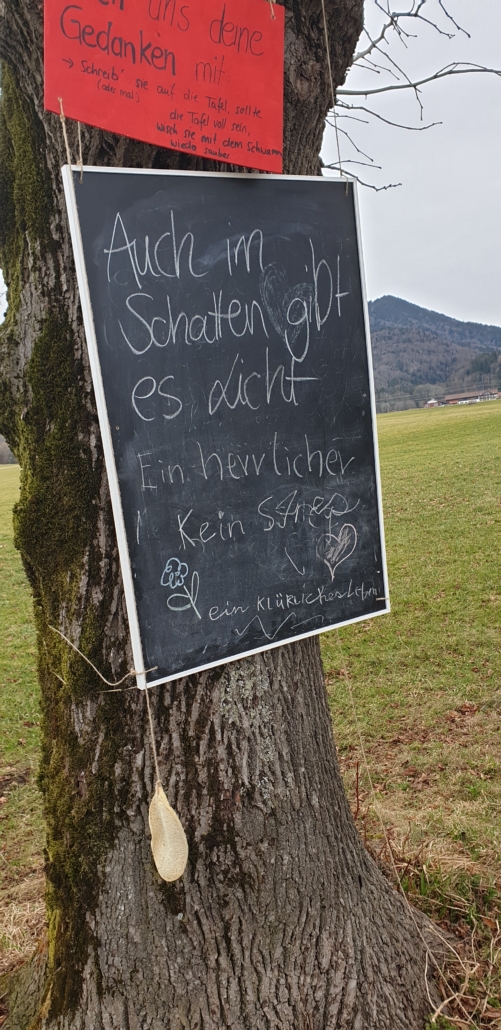 uns deine
Gedanken mit
→ Schreib' sie auf die Tafel, sollte
(oder mal)
die Tafel voll sein,
wisch sie mit dem Schwamm
wieder sauber
Auch im
Schatten gibt
es Licht
Ein herrlicher
Kein
ein KLÜKLiches Leben